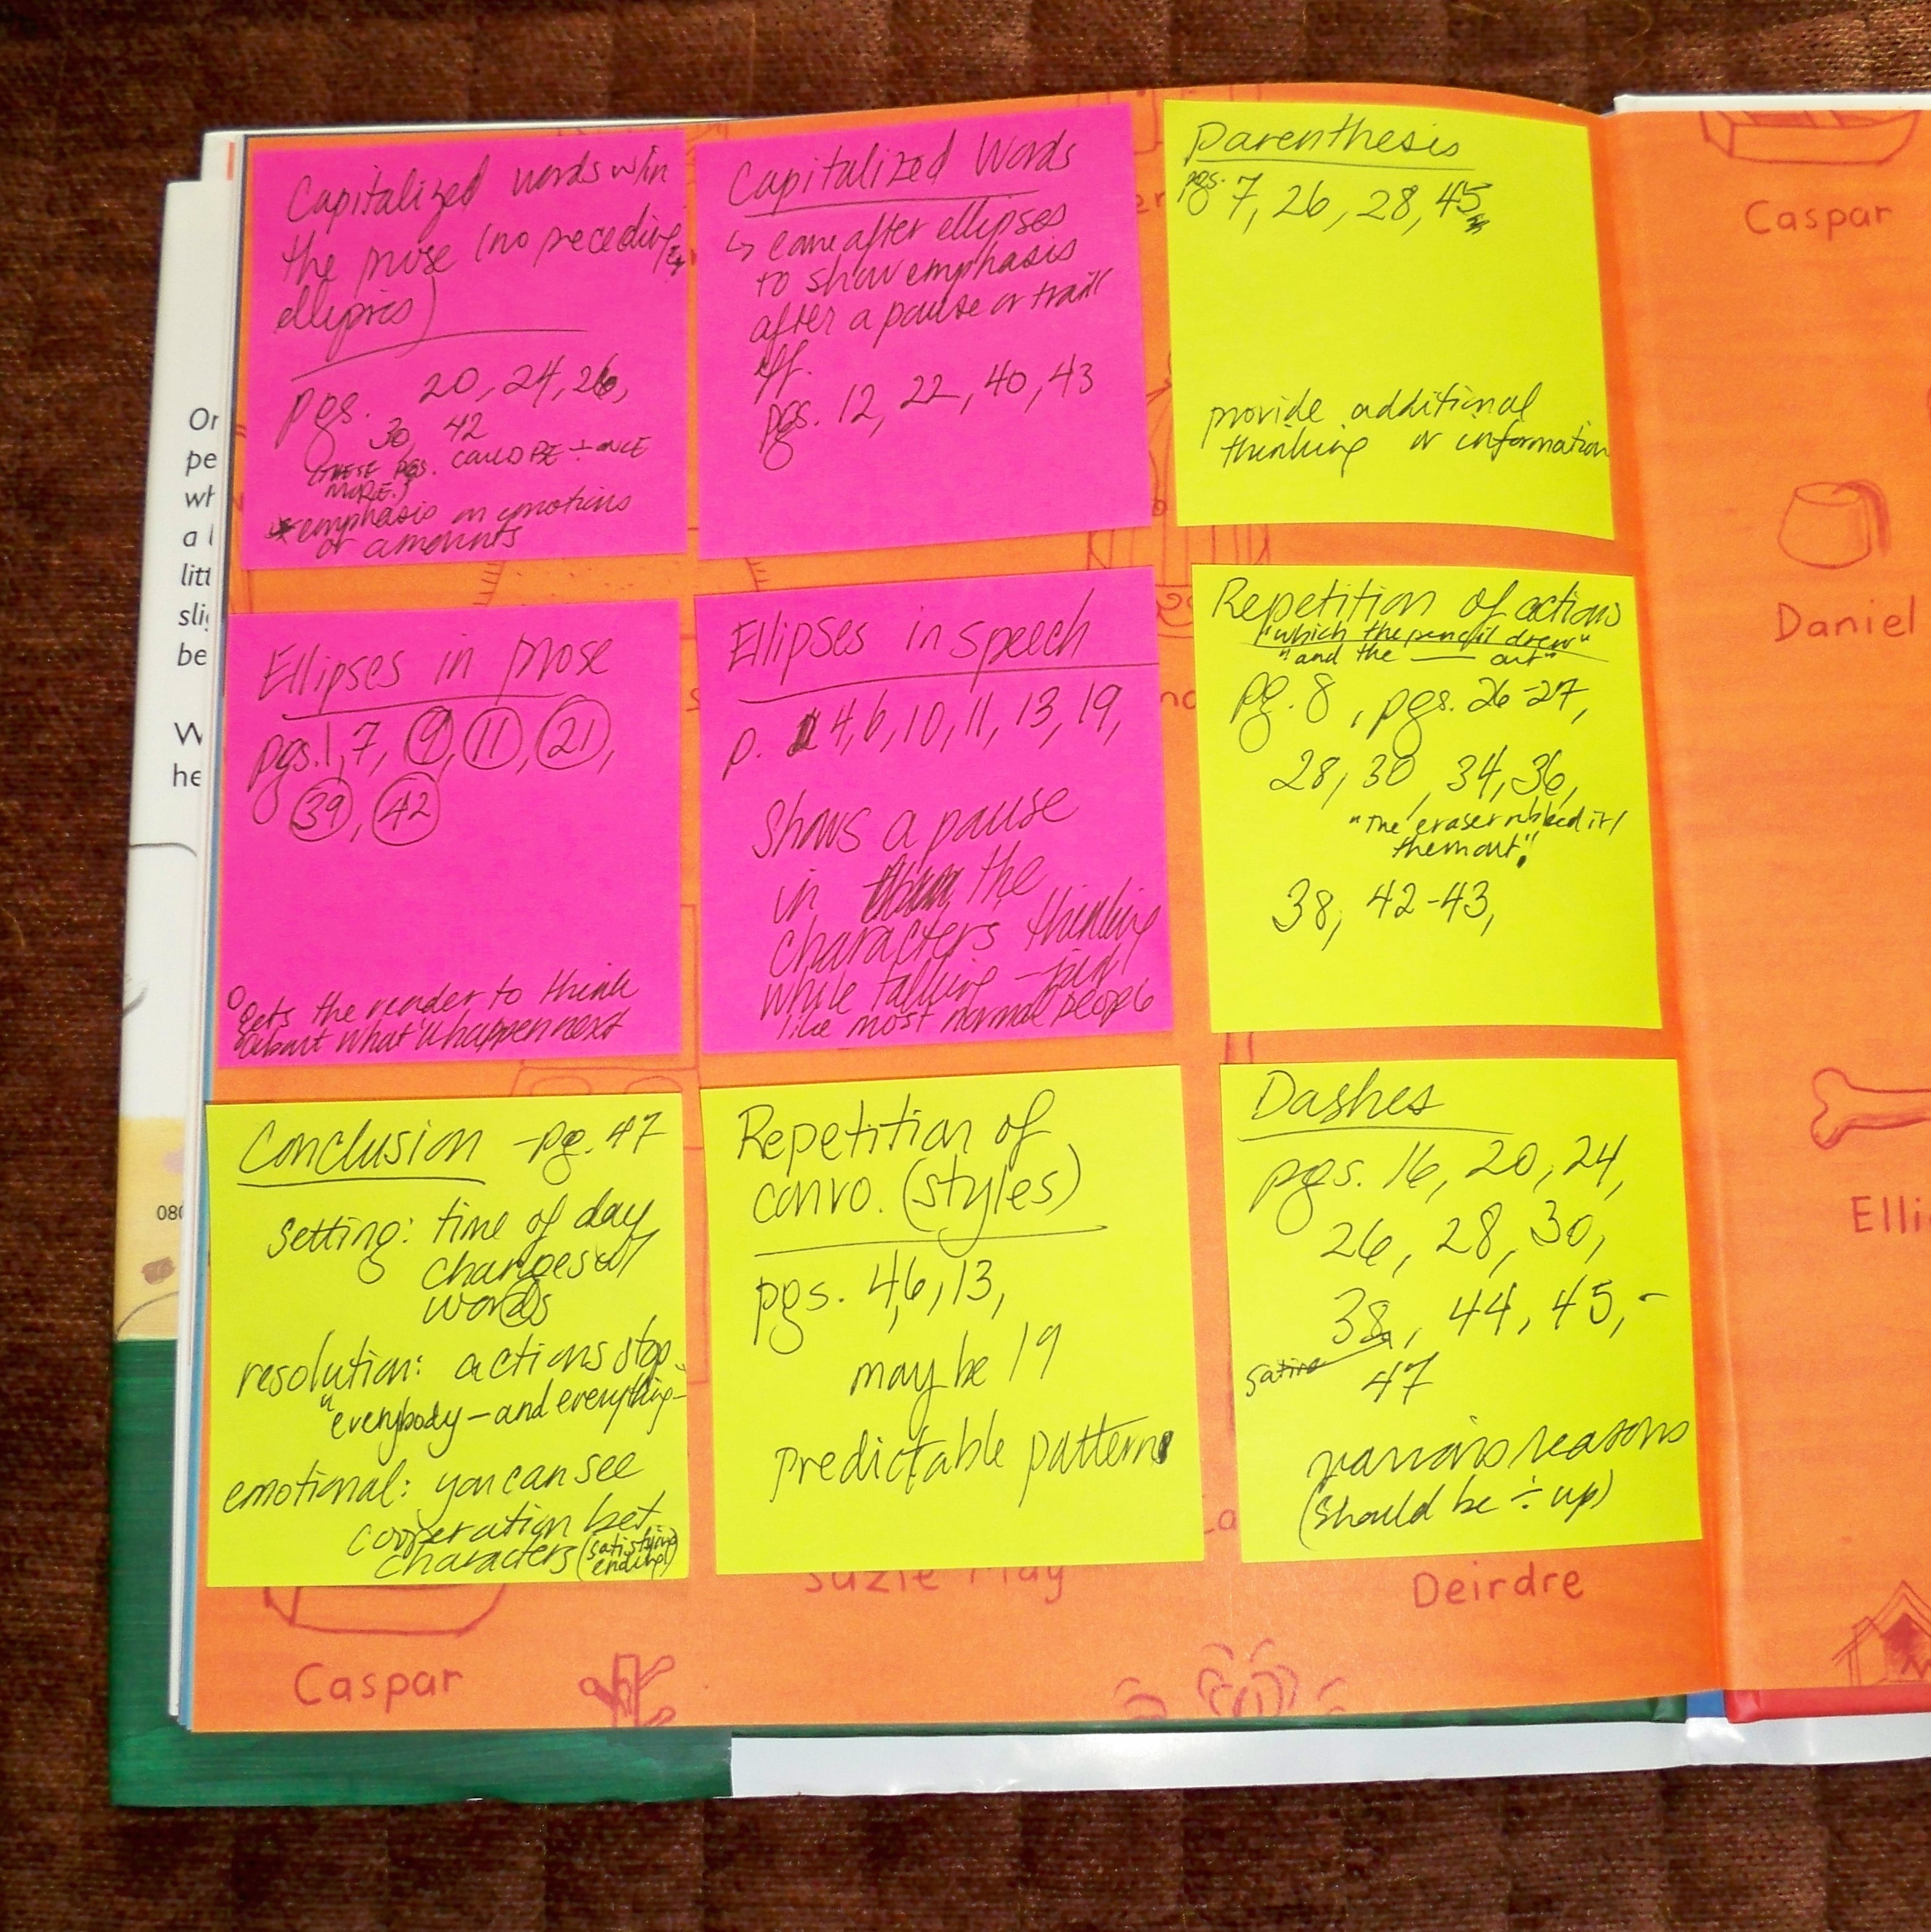 Capitalized words w/in
the prose (no preceding
ellipsies)
pgs. 20, 24, 26,
30, 42
(THESE PGS. COULD BE ÷ ONCE
MORE.)
* emphasis on emotions
or amounts
Capitalized Words
↳ came after ellipses
to show emphasis
after a pause or trail
off.
pgs. 12, 22, 40, 43
Parenthesis
pgs. 7, 26, 28, 45
provide additional
thinking or information
Ellipses in prose
pgs. 1, 7, 9, 11, 21,
39, 42
gets the reader to think
about what'll happen next
Ellipses in speech
p. 4, 6, 10, 11, 13, 19,
Shows a pause
in the
characters thinking
while talking - just
like most normal people
Repetition of actions
"which the pencil drew"
"and the — out"
pg. 8, pgs. 26-27,
28, 30, 34, 36,
"The eraser rubbed it/
them out."
38, 42-43,
Conclusion - pg. 47
Setting: time of day
changes w/
words
resolution: actions stop
"everybody - and everything -
emotional: you can see
cooperation bet
characters (satisfying
ending!)
Repetition of
convo. (styles)
pgs. 4, 6, 13,
maybe 19
predictable pattern
Dashes
pgs. 16, 20, 24,
26, 28, 30,
38, 44, 45, -
47
various reasons
(should be ÷ up)
Caspar
Suzie May
Deirdre
Caspar
Daniel
Elli
Or
pe
wh
a l
litt
sli
be
W
he
080